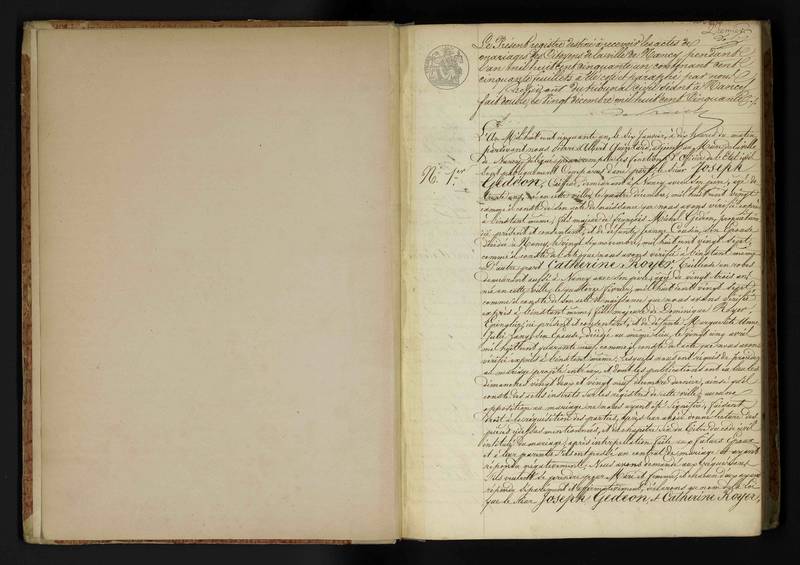 Premier
Le Présent registre destiné à recevoir les actes de
mariages des Citoyens de la ville de Nancy pendant
l'an mil huit cent cinquante un contenant cent
cinquante feuillets a été coté et paraphé par nous
du tribunal civil séant à Nancy
fait double, le vingt decembre mil huit cent Cinquante
N.° 1.er
L'An Mil huit cent cinquante un, le dix Janvier, à dix heures du matin,
pardevant nous Adjoint au Maire de la ville
de Nancy, délégué pour remplir les fonctions d'Officier de l'Etat civil
sont publiquement Comparus d'une part, le sieur Joseph
Gédéon, demeurant à Nancy avec son père, âgé de
trente ans, né en cette ville, le quatre décembre, mil huit cent vingt,
comme il conste de son acte de naissance que nous avons vérifié exprès
à l'instant même, fils majeur de François Michel Gédéon, propriétaire
ici présent et consentant, et de défunte Jeanne Cousin, son Epouse
décédée à Nancy, le vingt six novembre, mil huit cent vingt sept,
comme il conste de l'acte que nous avons vérifié à l'instant même
D'autre part Catherine Royer, Tailleuse en robes
demeurant aussi à Nancy avec son père, âgée de vingt trois ans
née en cette ville, le quatorze février, mil huit cent vingt sept,
comme il conste de son acte de naissance que nous avons vérifié
exprès à l'instant même, fille majeure de Dominique Royer,
Epinglier, ici présent et consentant, et de défunte Marguerite Anne
Julie son Epouse, décédée au même lieu, le vingt cinq avril
mil huit cent quarante neuf, comme il conste de l'acte que nous avons
vérifié exprès à l'instant même. Lesquels nous ont requis de procéder
au mariage projeté entre eux, et dont les publications ont eu lieu les
dimanches vingt deux et vingt neuf décembre dernier, ainsi qu'il
conste des actes inscrits sur les registres de cette ville, aucune
opposition au mariage ne nous ayant été signifiée, faisant
droit à la réquisition des parties, après leur avoir donné lecture des
pièces ci-dessus mentionnées, et du chapitre six du Titre du code civil
intitulé du mariage, après interpellation faite aux futurs Epoux
et à leurs parents s'ils ont passé un contrat de mariage et ayant
répondu négativement, Nous avons demandé aux Requérans
s'ils veulent se prendre pour Mari et femme, et chacun d'eux ayant
répondu séparément et affirmativement, déclarons au nom de la Loi
que le sieur Joseph Gédéon, et Catherine Royer,